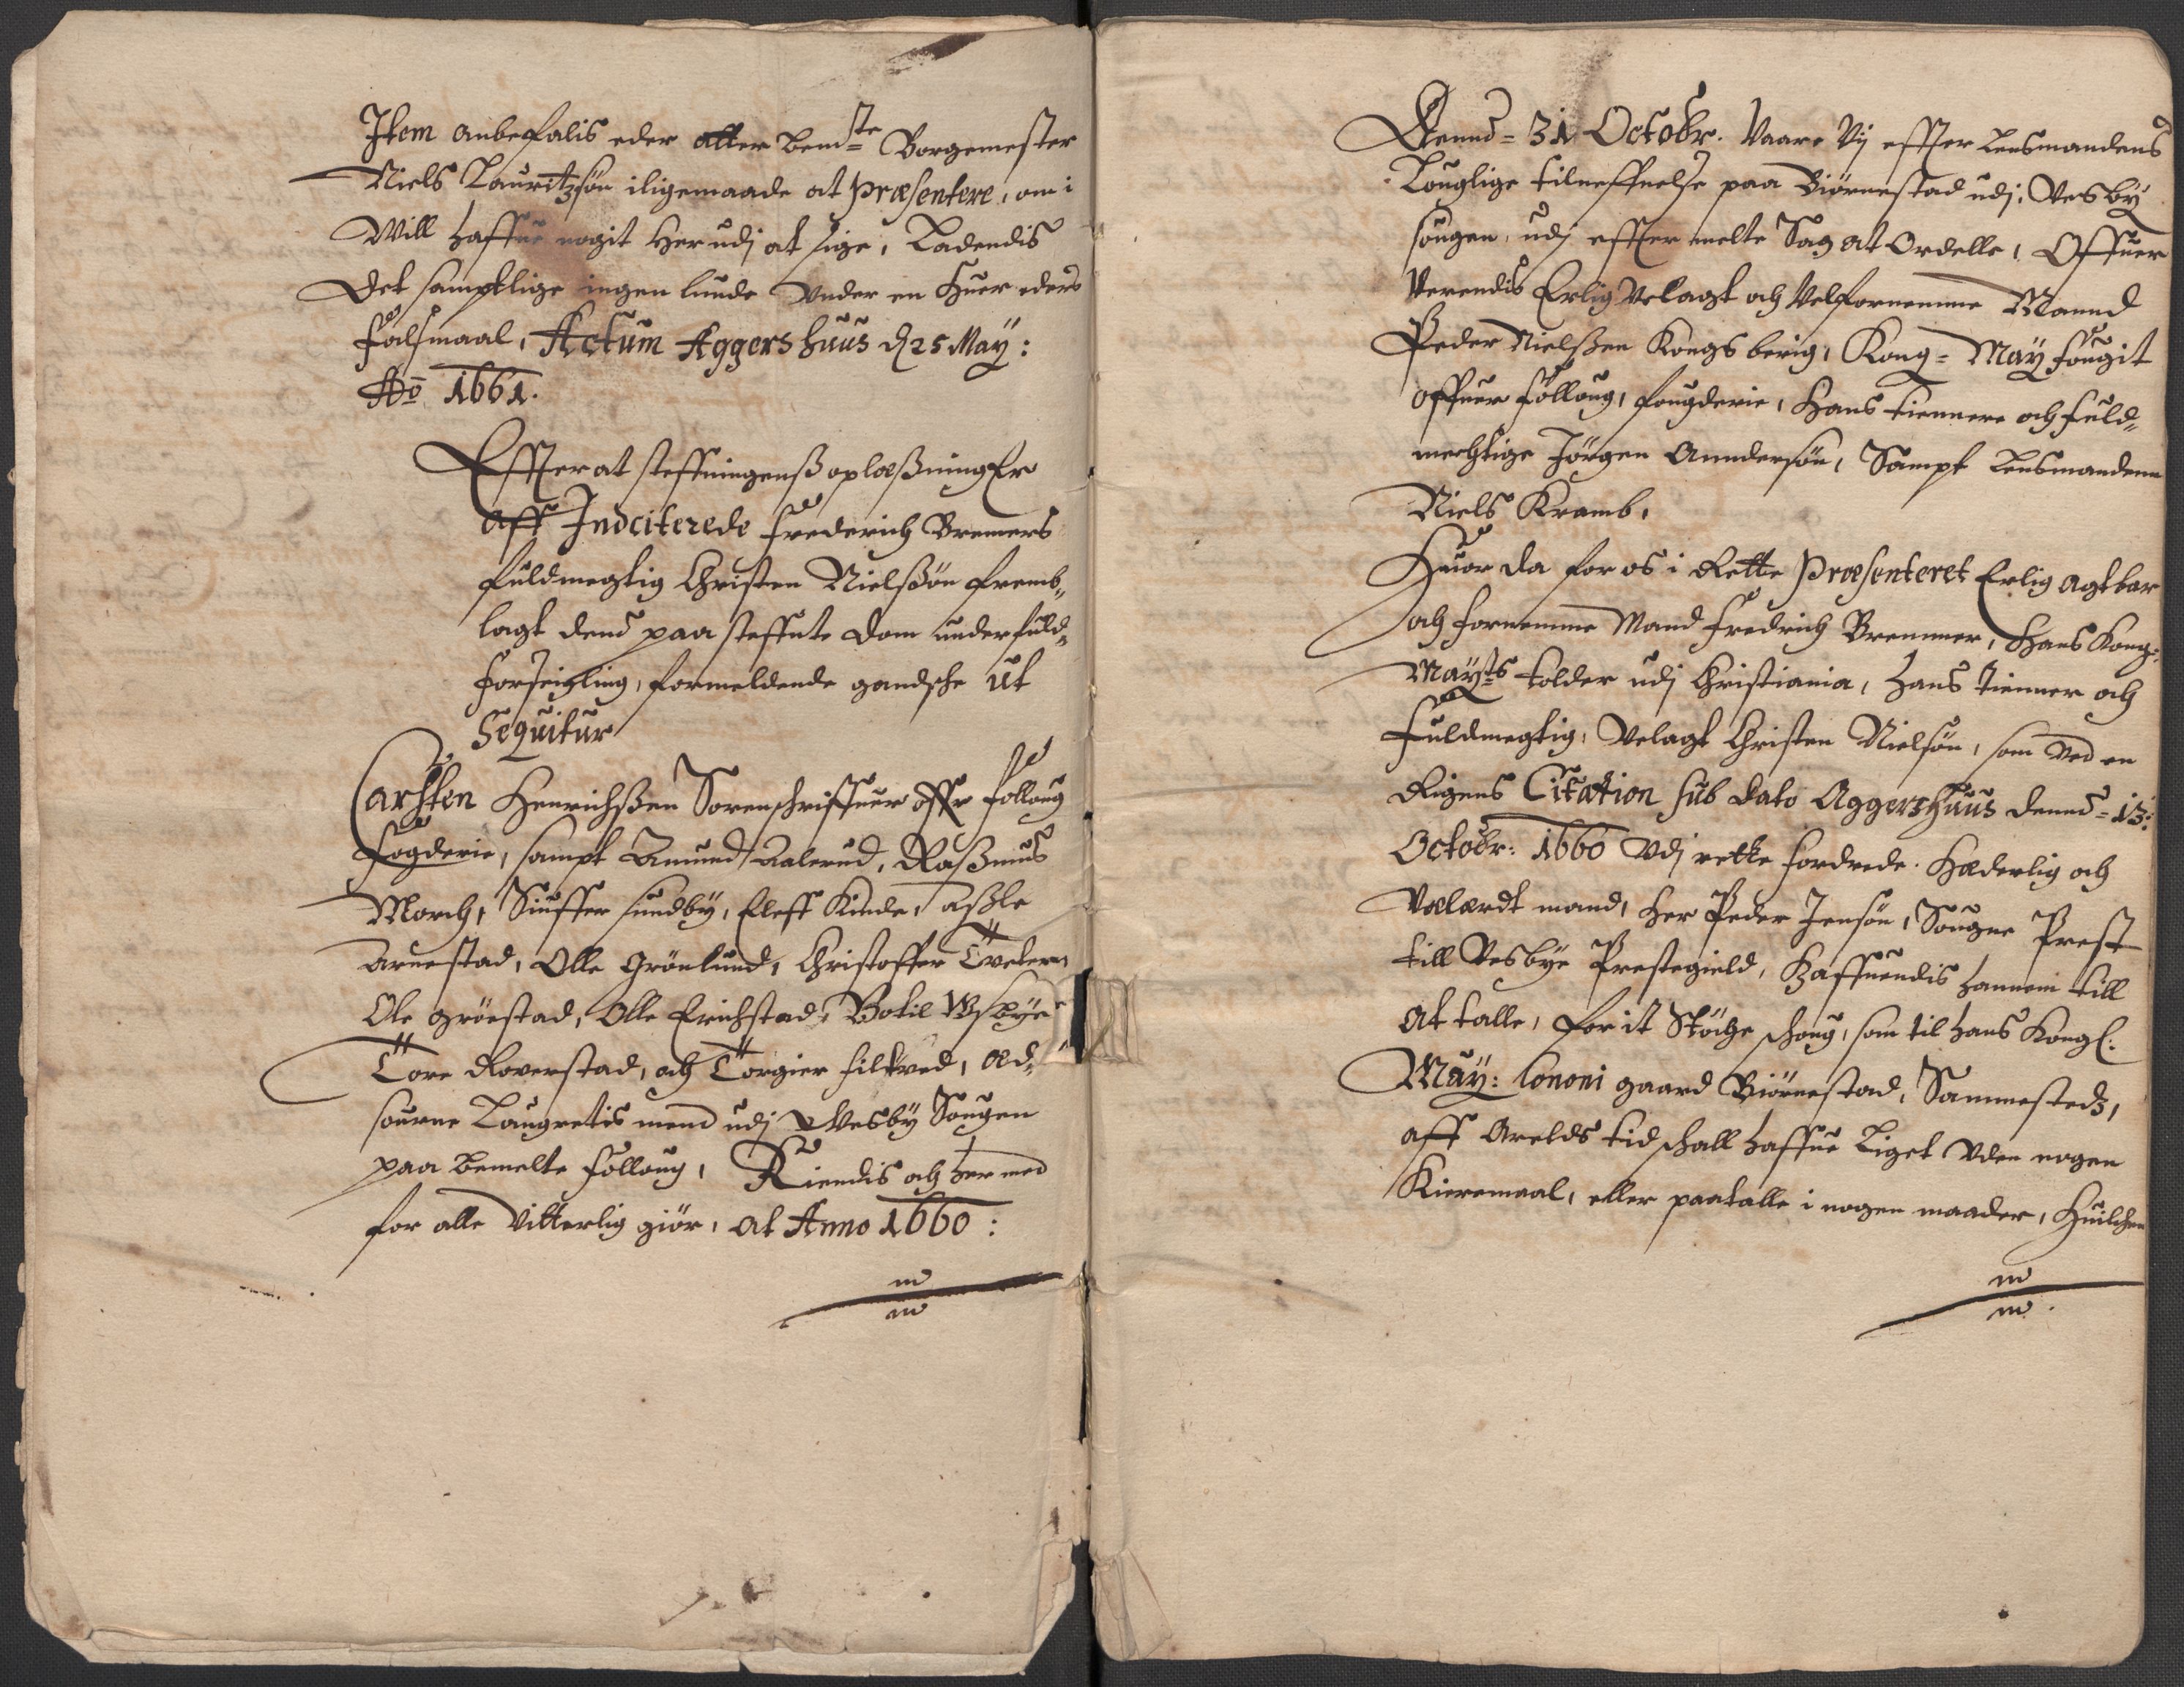 Item anbefalis eder atter bemte Borgemester
Niels Lauritzsøn iligemaade at præsentere, om i
Will haffue nogit Her udj at sige, Ladendis
Det samptlige ingen lunde Under en Huer eders
falsmaal, Actum Aggershuus d 25 May:
Ao 1661.
Effter at steffningenß oplæßning Er
aff Indciterede Frederich Bremers
fuldmegtig Christen Nielßøn fremb„
lagt dend paa steffnte dom under fuld„
forseigling, formeldende gandsche ut
Sequitur
Carsten Henrichßen Sorenschriffuer offr Folloug
Fogderie, sampt Amund Aalerud, Raßmus
Morch, Siuffer Sundby, Eleff Kinde, Aßle
Arnestad, Olle Grönlund, Christoffer Tveter
Ole Gröestad, Olle Erichstad, Botil Wsbye
Tore Roverstad, och Torgier Filtved, Ed„
sourne Laugrettis mend udj Vesby Sougen
paa bemelte Folloug, Kiendis och her med
for alle Vitterlig giør, at Anno 1660:
m
m
Dennd = 31 Octobr. Vaare Vij effter Lensmandens
Louglige tilneffnelse paa Biörnestad udj Vesby
sougen, udj effter melte Sag at Ordelle, Offuer
Verendis Erlig Velagt och Velfornemme Mannd
Peder Nielßen Kongs berig, Kong= May fougit
offuer Folloug, fougderie, Hans tiennere och fuld„
mechtige Jörgen Anndersøn, Sampt Lensmanden
Niels Kramb,
Huor da for os i Rette præsenteret Erlig agtbar
och fornemme Mand Fredrich Bremmer, Hans Kong:
Mayts tolder udj Christiania, hans tienner och
Fuldmegtig, Velagt Christen Nielsøn, som ved en
Rigens Citation sub dato Aggerzhuus dennd = 13:
Octobr: 1660 Udj rette fordrede. Hæderlig och
Vellærdt mand, Her Peder Jensøn, Sougne Prest
till Vesbye Prestegield, Haffuendis hannem till
at talle, for it Støche schoug, som til hans Kongl:
May: Cononi gaard Biörnestad, Sammestedz,
aff Arelds tid schall haffue Liget Uden nogen
Kieremaal, eller paatalle i nogen maader, Huilchen
m
m.